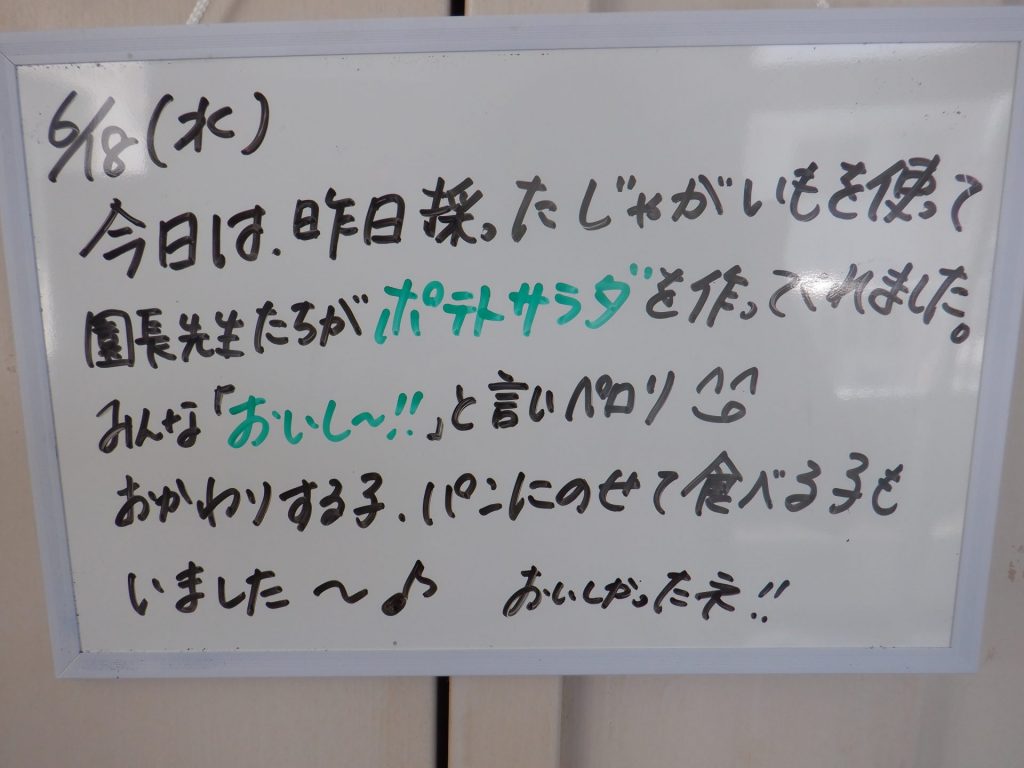 6/18(水)
今日は、昨日採ったじゃがいもを使って
園長先生たちがポテトサラダを作ってくれました。
みんな「おいし〜!!」と言いペロリ
おかわりする子、パンにのせて食べる子も
いました〜♪ おいしかったネ!!